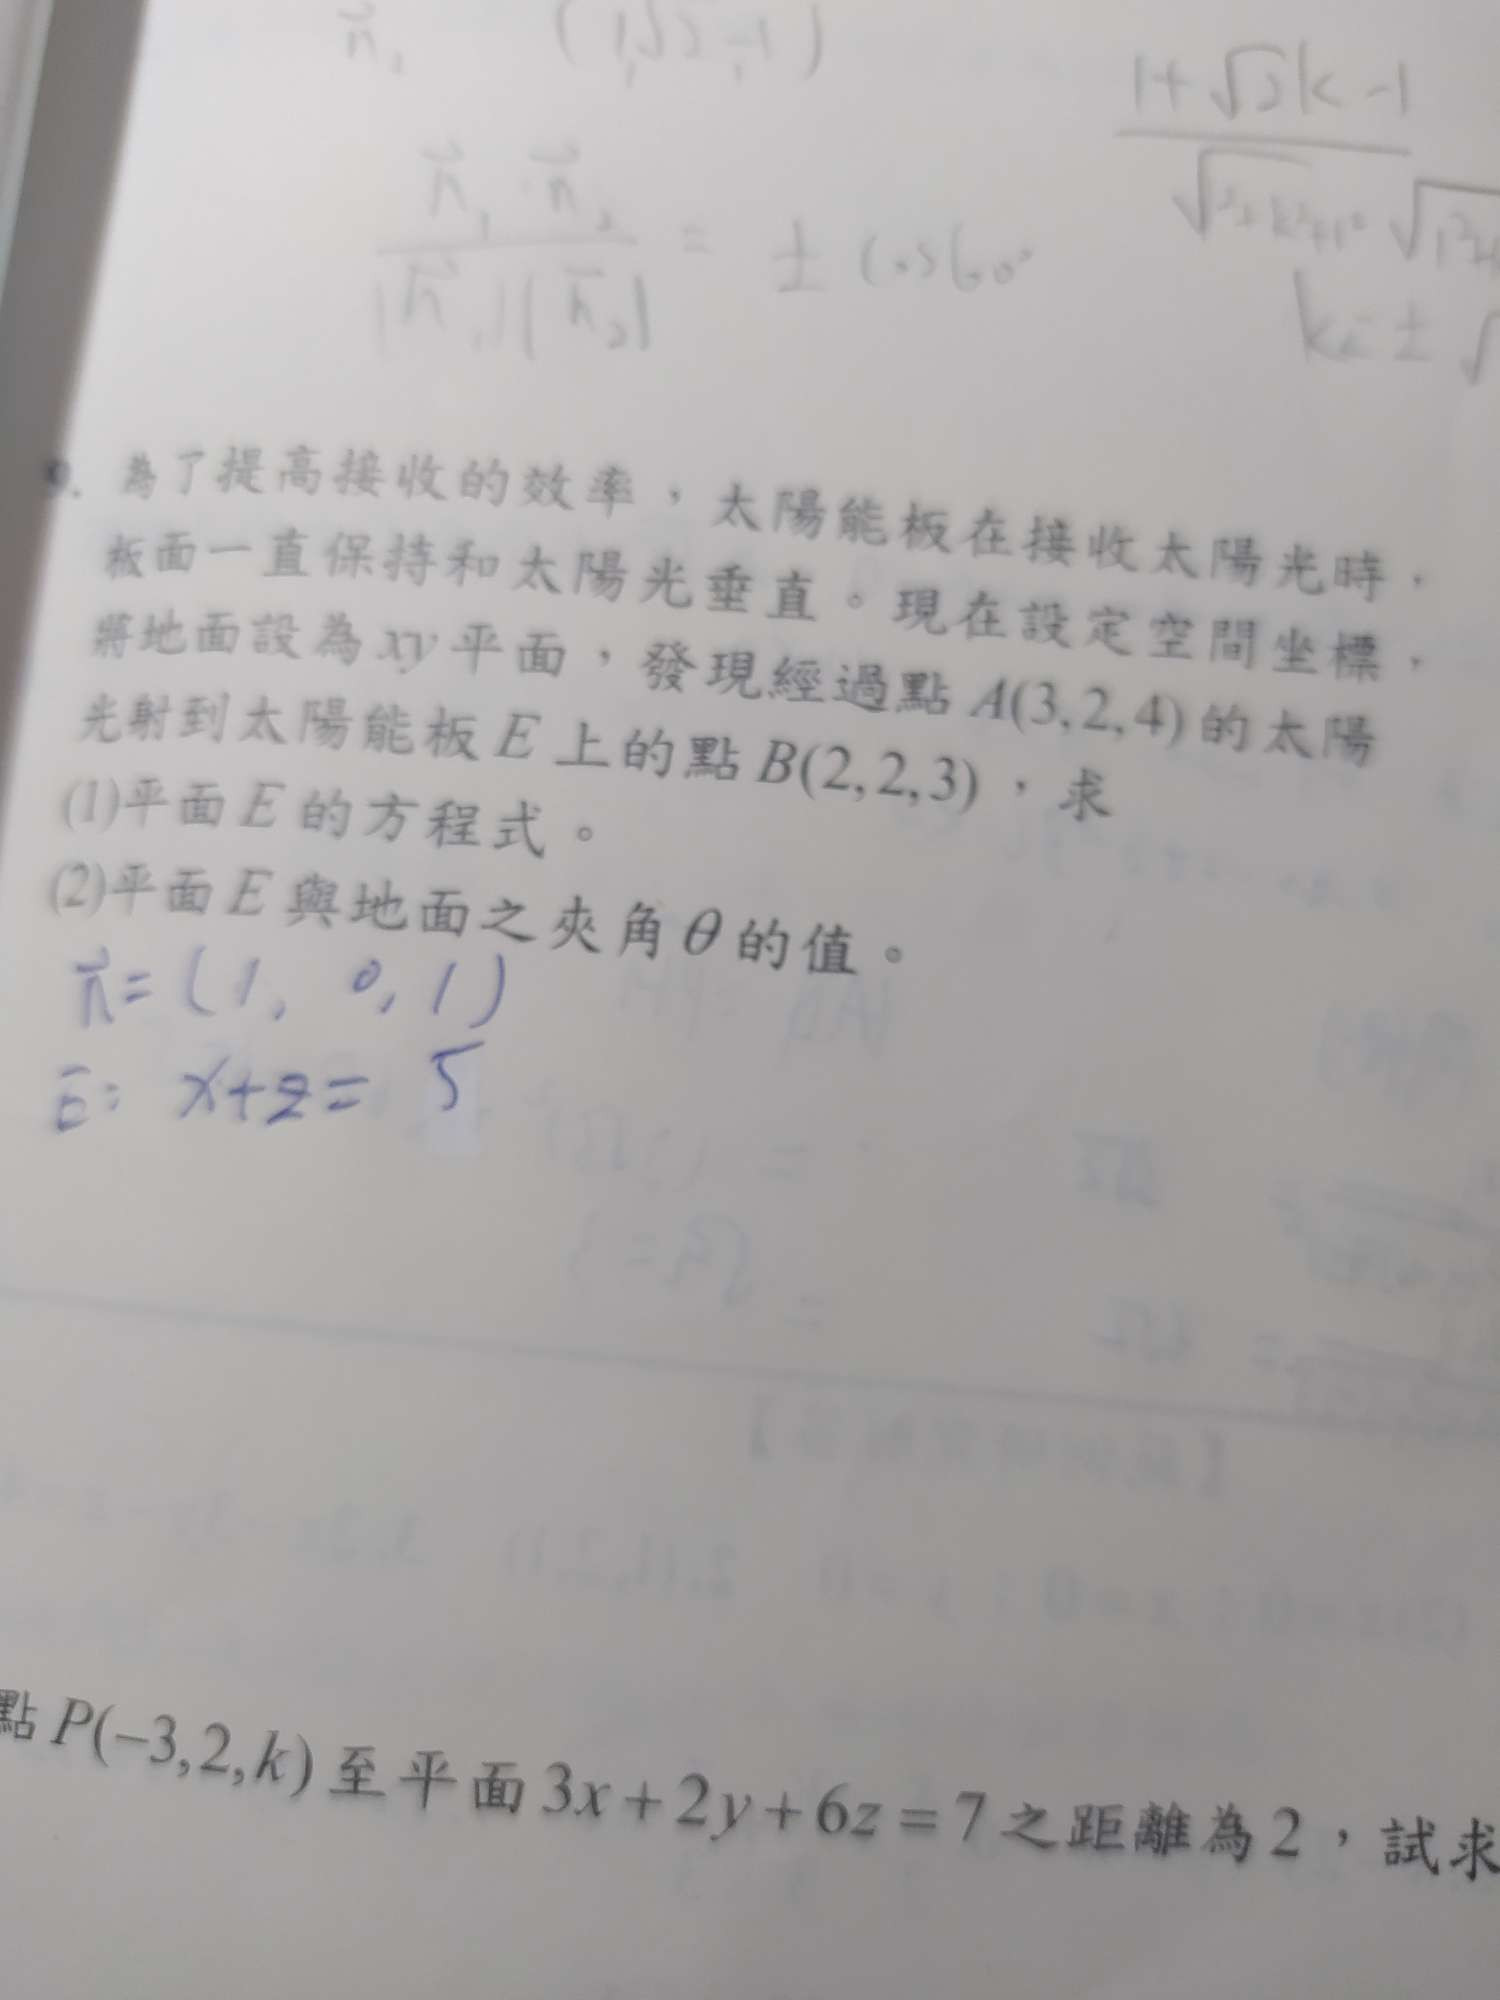 n₁ (1,√2,-1)
1+√2k-1
n₁·n₂ = ± cos60°
|n₁||n₂|
k=±√
為了提高接收的效率，太陽能板在接收太陽光時，
板面一直保持和太陽光垂直。現在設定空間坐標，
將地面設為xy平面，發現經過點A(3,2,4)的太陽
光射到太陽能板E上的點B(2,2,3)，求
(1)平面E的方程式。
(2)平面E與地面之夾角θ的值。
n=(1, 0, 1)
E: x+z= 5
點P(−3,2,k)至平面3x+2y+6z=7之距離為2，試求